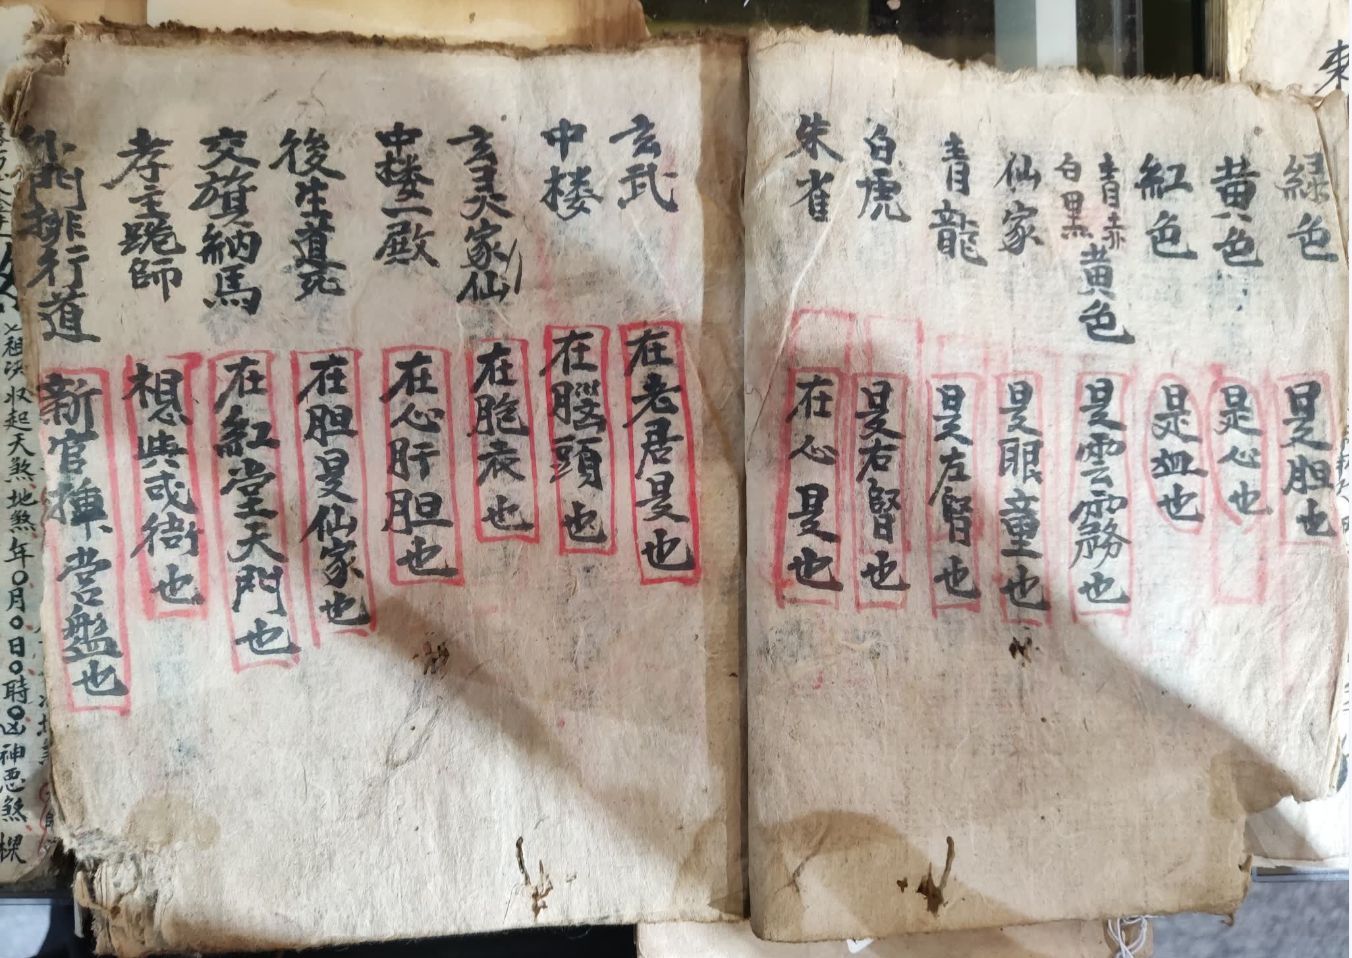 绿色 是胆也
黄色 是心也
紅色 是血也
青赤白黑黄色 是雲霧也
仙家 是眼童也
青龍 是左腎也
白虎 是右腎也
朱雀 在心是也
玄武 在老君是也
中楼 在腦頭也
玄灵家仙 在胞衣也
中楼二殿 在心肝胆也
後生道死 在胆是仙家也
交旗納馬 在紅堂天門也
孝主跪師 想共戒衙也
門排行道 新官揮营盤也
祖決收起天煞地煞年〇月〇日〇時〇凶神恶煞